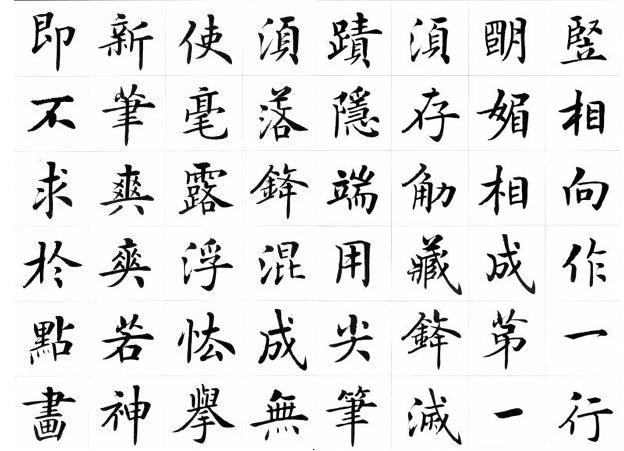 豎相向作一行
朙媚相成苐一
須存觔藏鋒滅
蹟隱端用尖筆
須落鋒混成無
使毫露浮怯舉
新筆爽爽若神
即不求於點畫